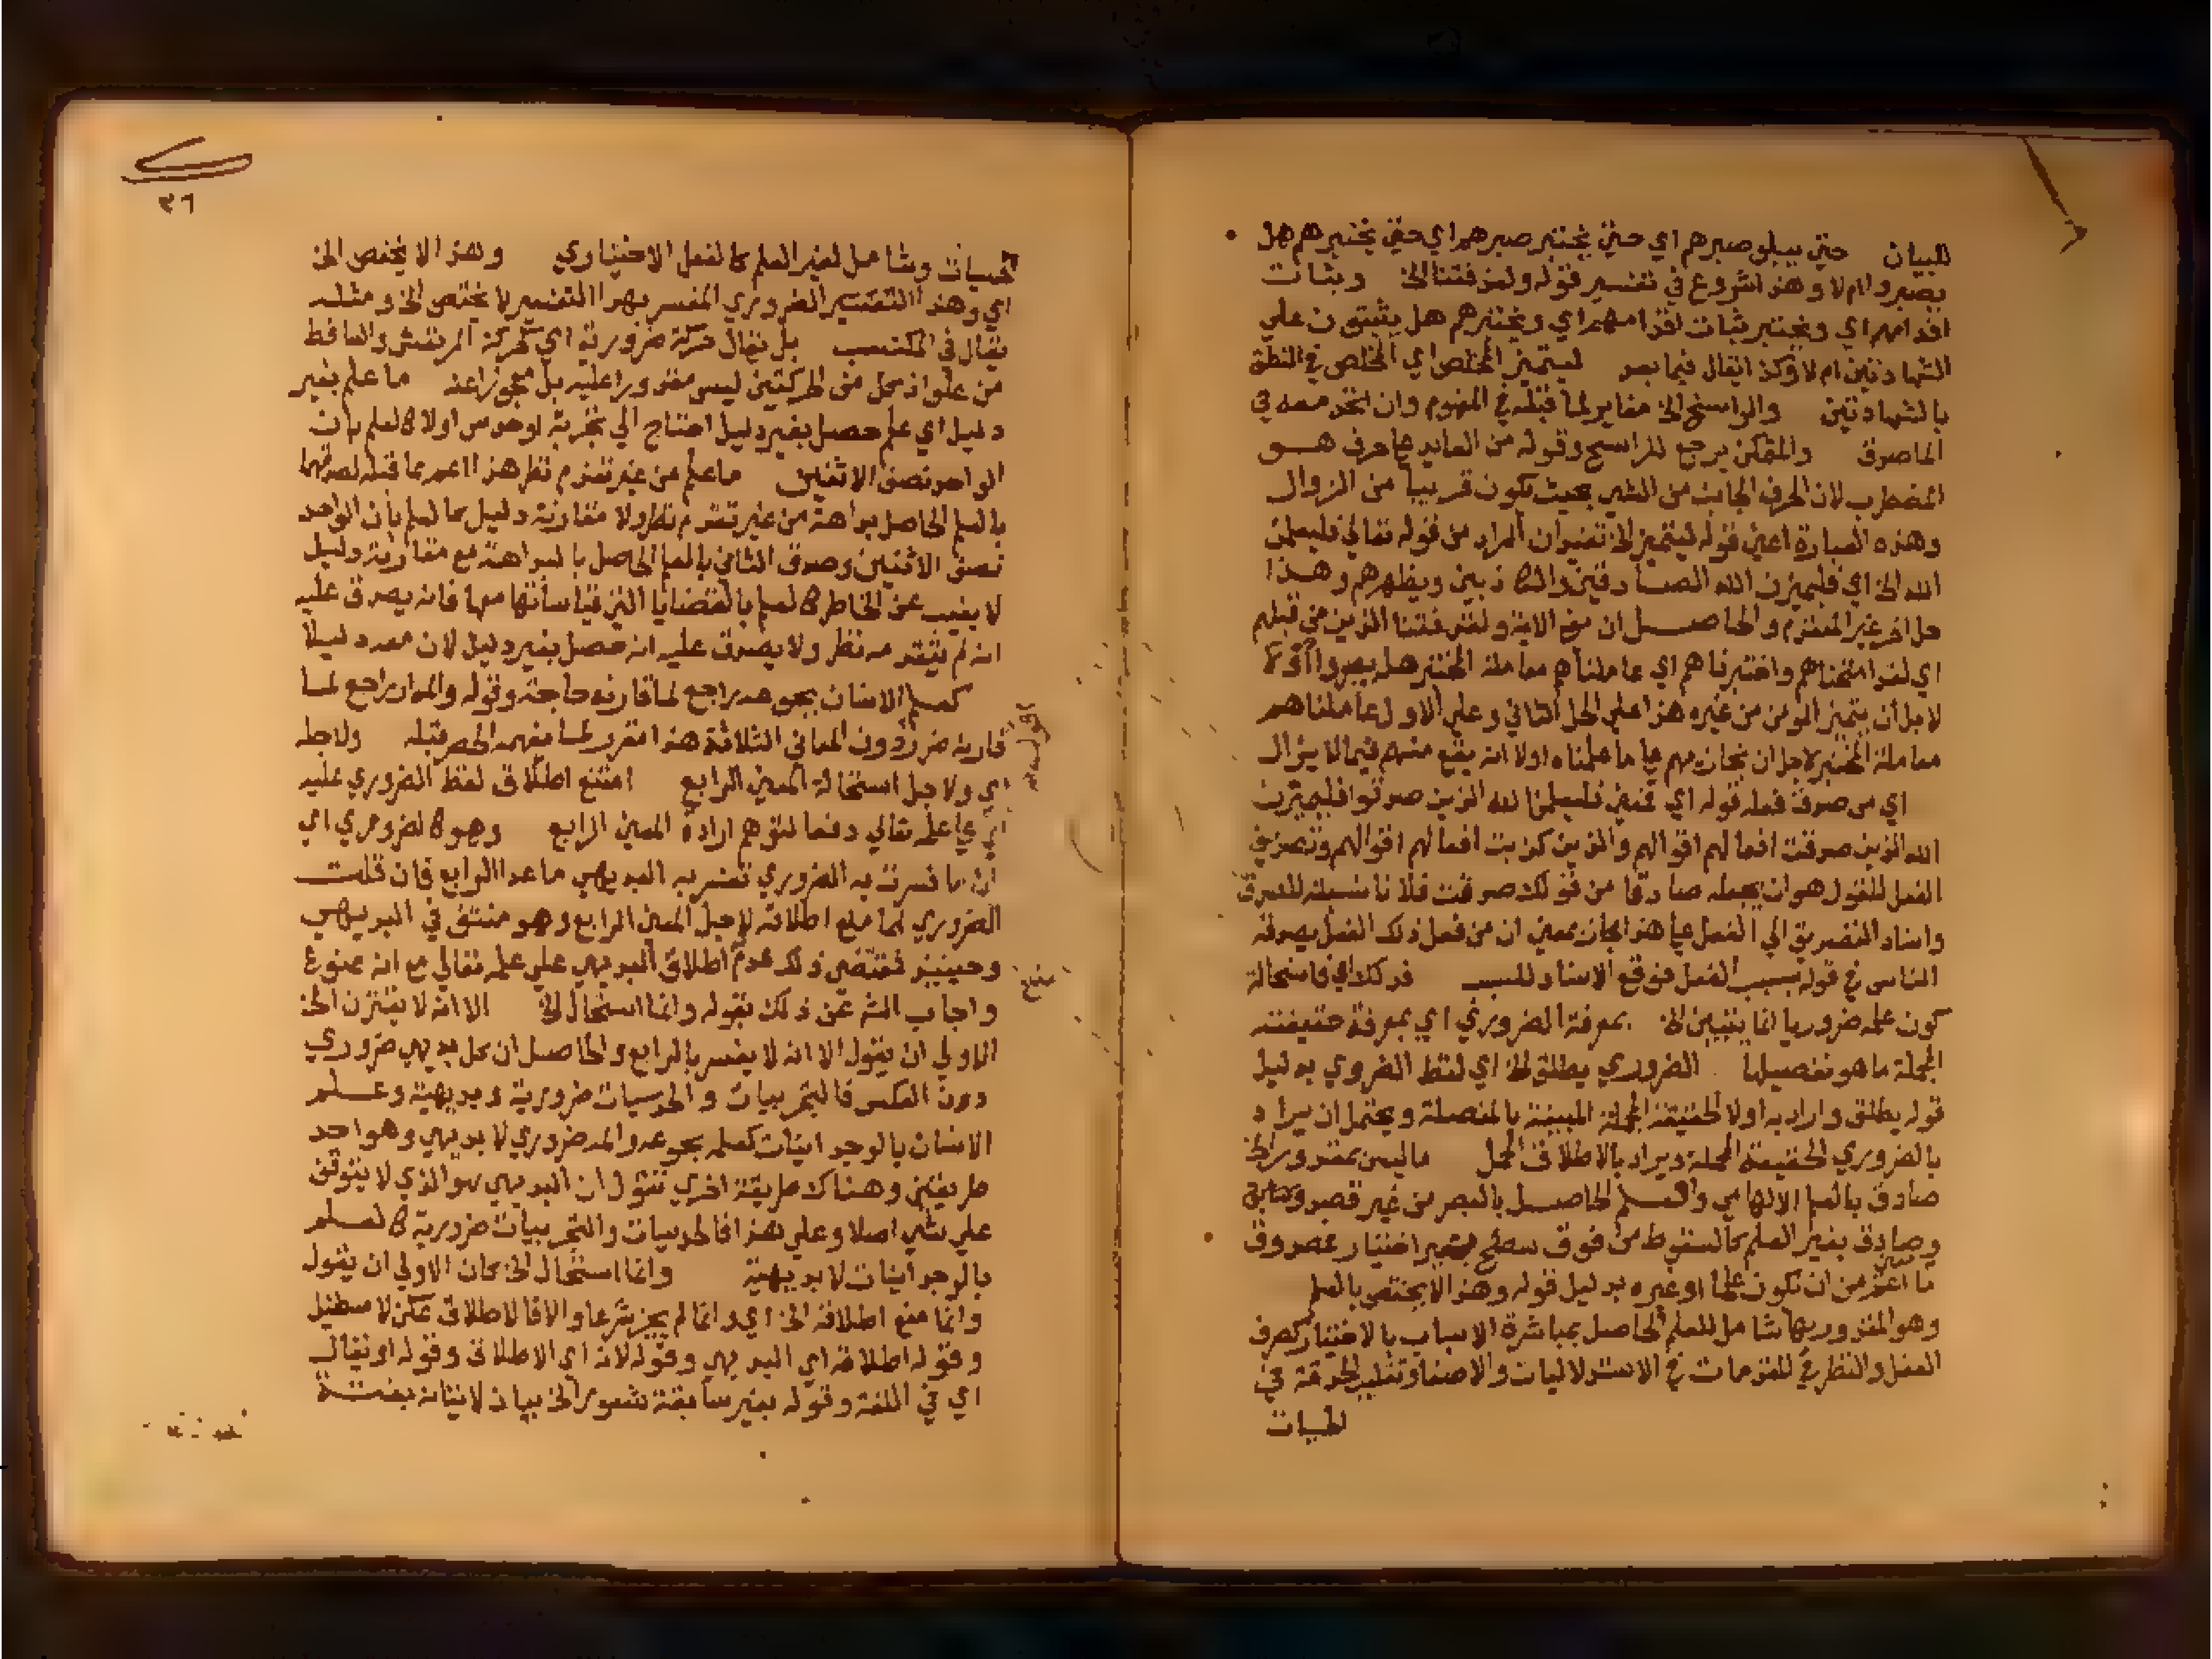 للبيان حتى يبلو صبرهم اي حتى يختبر صبرهم اي حتى يختبرهم هل
يصبروا ام لا وهذا شروع في تفسير قوله ولقد فتنا الخ وبثبات
اقدامهم اي ويختبر ثبات اقدامهم اي ويختبرهم هل يثبتون علي
الشهادتين ام لا وكذا يقال فيما بعد ليتميز المخلص اي المخلص في النطق
بالشهادتين والراسخ الخ مغاير لما قبله في المفهوم وان اتحد معه في
الماصدق والمتمكن يرجع للراسخ وقوله من العابد علي حرف هو
المضطرب لان الحرف الجانب من الشي بحيث يكون قريبا من الزوال
وهذه العبارة اعني قوله ليتميز الخ تفيد ان المراد من قوله تعالي فليعلمن
الله الخ اي فليميزن الله الصادقين والكاذبين ويظهرهم وهذا
حل اخر غير المتقدم والحاصل ان معني الاية ولقد فتنا الذين من قبلهم
اي لقد امتحناهم واختبرناهم اي عاملناهم معاملة المختبر هل يصبروا او لا
لاجل ان يتميز المومن من غيره هذا علي الحل الثاني وعلي الاول عاملناهم
معاملة المختبر لاجل ان نجازيهم علي ما علمناه اولا انه يقع منهم فيما لا يزال
اي من صدق فعله قوله اي فمعني فليعلمن الله الذين صدقوا فليميزن
الله الذين صدقت افعالهم اقوالهم والذين كذبت افعالهم اقوالهم وتصديق
الفعل للقول هو ان يجعله صادقا من قولك صدقت فلانا نسبته للصدق
واسناد التصديق الي الفعل علي هذا مجاز بمعني ان من فعل ذلك الفعل يصدقه
الناس في قوله بسبب الفعل فوقع الاسناد للسبب فدلك اي فاستحالة
كون علمه ضروريا انما يتبين الخ بمعرفة الضروري اي بمعرفة حقيقته
المجملة ما هو تفصيلها الضروري يطلق الخ اي لفظ الضروي بدليل
قوله يطلق واراد به اولا الحقيقة المجملة المبينة بالمنفصلة ويحتمل ان يراد
بالضروري الحقيقة المجملة ويراد بالاطلاق الحمل ما ليس بمقدور الخ
صادق بالعلم الالهامي والعلم الحاصل بالبصر من غير قصد
وصادق بغير العلم كالسقوط من فوق سطح بغير اختيار فمصدوق
ما اعم من ان تكون علما او غيره بدليل قوله وهذا لا يختص بالعلم
وهو المقدور بها شامل للعلم الحاصل بمباشرة الاسباب بالاختيار كصرف
العقل والنظر في المقدمات في الاستدلاليات والاصغا وتقليب الحدقة في
الحسيات
٣٦
الحسيات وشامل لغير العلم كالفعل الاختياري وهذا لا يختص الخ
اي وهذا التفسير الضروري المفسر بهذا التفسير لا يختص الخ ومثله
يقال في المكتسب بل يقال حركة ضرورية اي كحركة المرتعش والساقط
من علو اذ كل من الحركتين ليس مقدورا عليه بل عجزا عنه ما علم بغير
دليل اي علم حصل بغير دليل احتاج الي تجربة او حدس اولا كالعلم بان
الواحد نصف الاثنين ما علم من غير تقدم نظر هذا اعم مما قبله لصدقهما
بالعلم الحاصل بداهة من غير تقدم نظر ولا مقارنة دليل كالعلم بان الواحد
نصف الاثنين وصدق الثاني بالعلم الحاصل بالبداهة مع مقارنة دليل
لا يغيب عن الخاطر كالعلم بالقضايا التي قياساتها معها فانه يصدق عليه
انه لم يتقدمه نظر ولا يصدق عليه انه حصل بغير دليل لان معه دليلا
كعلم الانسان بجوعه راجع لما قارنه حاجة وقوله والمه راجع لما
قارنه ضرر دون المعاني الثلاثة هذا مقرر لما يفهمه الحصر قبله ولاجله
اي ولاجل استحالة المعني الرابع امتنع اطلاق لفظ الضروري عليه
اي علي علمه تعالي دفعا لتوهم ارادة المعني الرابع وهو كالضروري اي
ان ما فسرت به الضروري تفسر به البديهي ما عدا الرابع فان قلت
الضروري انما منع اطلاقه لاجل المعني الرابع وهو منتف في البديهي
وحينيذ فمقتضي ذلك عدم اطلاق البديهي علي علمه تعالي مع انه ممنوع
منع
واجاب الشه عن ذلك بقوله وانما استحال الخ الا انه لا يقترن الخ
الاولي ان يقول الا انه لا يفسر بالرابع والحاصل ان كل بديهي ضروري
دون العكس فالتجربيات والحدسيات ضرورية وبديهية وعلم
الانسان بالوجدانيات كعلمه بجوعه والمه ضروري لا بديهي وهو احد
طريقتين وهناك طريقة اخري تقول ان البديهي هو الذي لا يتوقف
علي شي اصلا وعلي هذا فالحدسيات والتجربيات ضرورية كالعلم
بالوجدانيات لا بديهية وانما استحال الخ كان الاولي ان يقول
وانما منع اطلاقه الخ اي وانما لم يجز شرعا والا فالاطلاق ممكن لا مستحيل
وقوله اطلاقه اي البديهي وقوله لانه اي الاطلاق وقوله او يقال
اي في اللغة وقوله بغير سابقة شعور الخ بيان لاتيانه بغتة